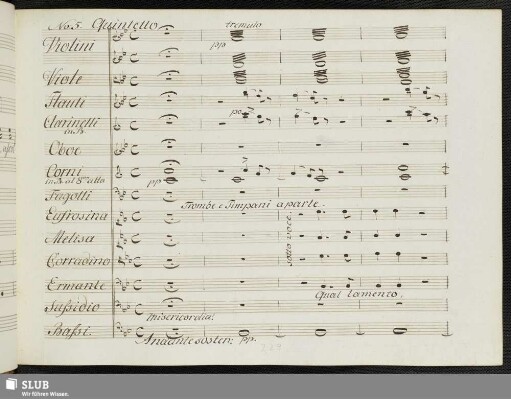 No. 5. Quintetto
tremulo
Violini
pp
Viole
Flauti
po
Clarinetti
in B
Oboe
Corni
in B al 8va alto
pp
Fagotti
Trombe e Timpani a parte.
Eufrosina
sotto voce.
Melisa
Corradino
Ermante
Qual lamento,
Sussidio
Misericordia!
Bassi.
Andante sosten: pp.
SLUB
Wir führen Wissen.